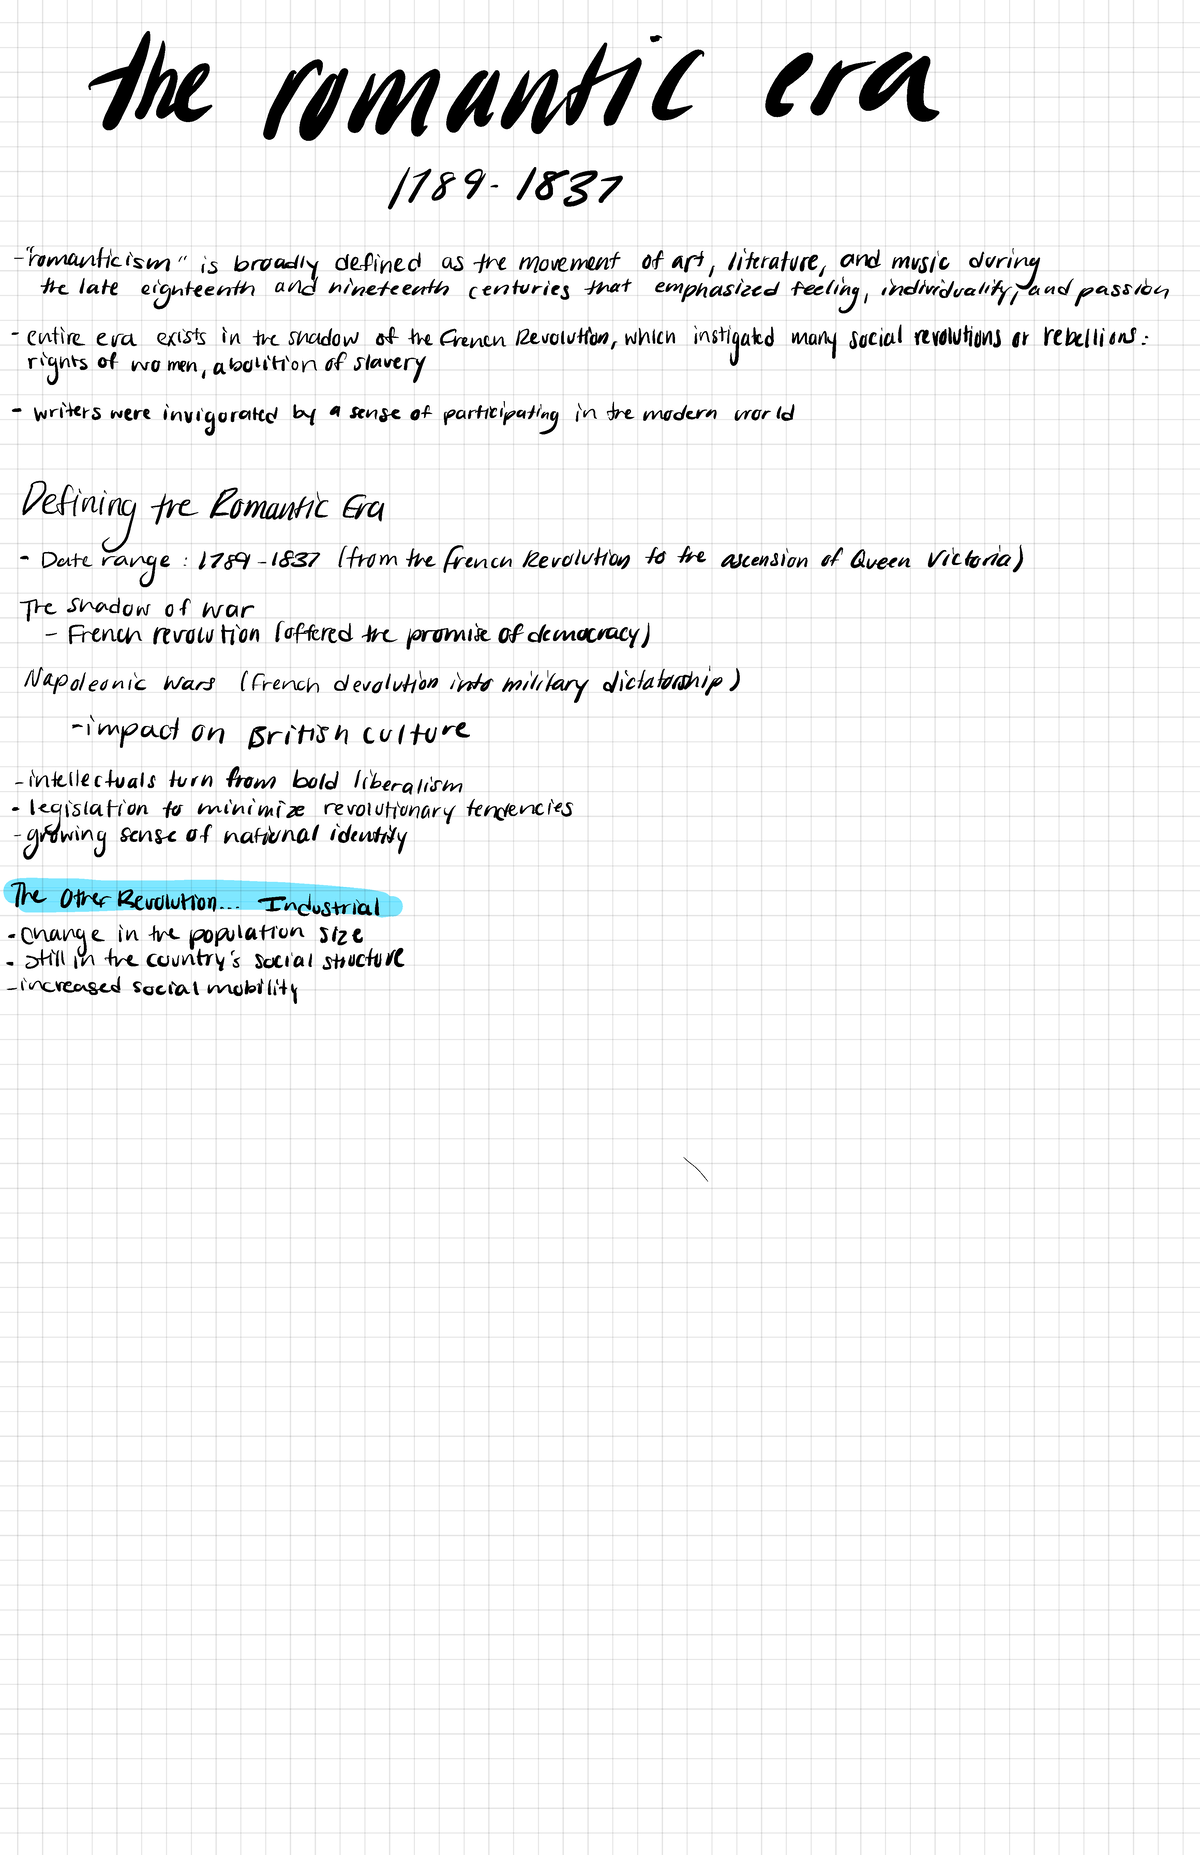 the romantic era
1789-1837
-"romanticism" is broadly defined as the movement of art, literature, and music during
the late eighteenth and nineteenth centuries that emphasized feeling, individuality, and passion
- entire era exists in the shadow of the French Revolution, which instigated many social revolutions or rebellions:
rights of women, abolition of slavery
- writers were invigorated by a sense of participating in the modern world
Defining the Romantic Era
- Date range: 1789-1837 (from the French Revolution to the ascension of Queen Victoria)
The shadow of war
- French revolution (offered the promise of democracy)
Napoleonic wars (French devolution into military dictatorship)
-impact on British culture
-intellectuals turn from bold liberalism
- legislation to minimize revolutionary tendencies
-growing sense of national identity
The Other Revolution... Industrial
- change in the population size
- still in the country's social structure
-increased social mobility